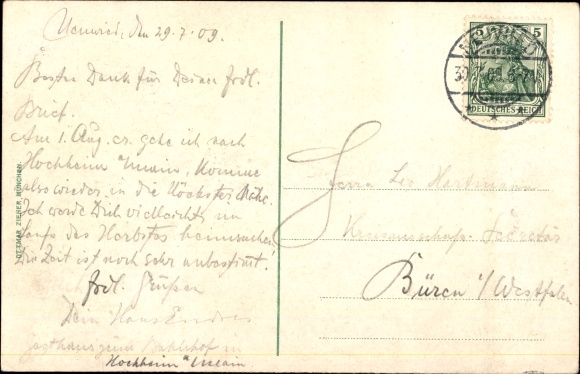 Neuwied, den 29.7.09.
Besten Dank für Deinen frdl.
Brief.
Am 1. Aug. cr. gehe ich nach
Hochheim a/Main, komme
also wieder in die Höchster Nähe.
Ich werde Dich vielleicht im
Laufe des Herbstes heimsuchen.
Die Zeit ist noch sehr unbestimmt!
Frdl. Grüßen
Dein Hans Endres
Gasthaus zum Bahnhof in
Hochheim a/Main
OTTMAR ZIEHER, MÜNCHEN.
5
DEUTSCHES REICH
Herrn Leo Hartmann
Sekretär
Büren i/Westfalen